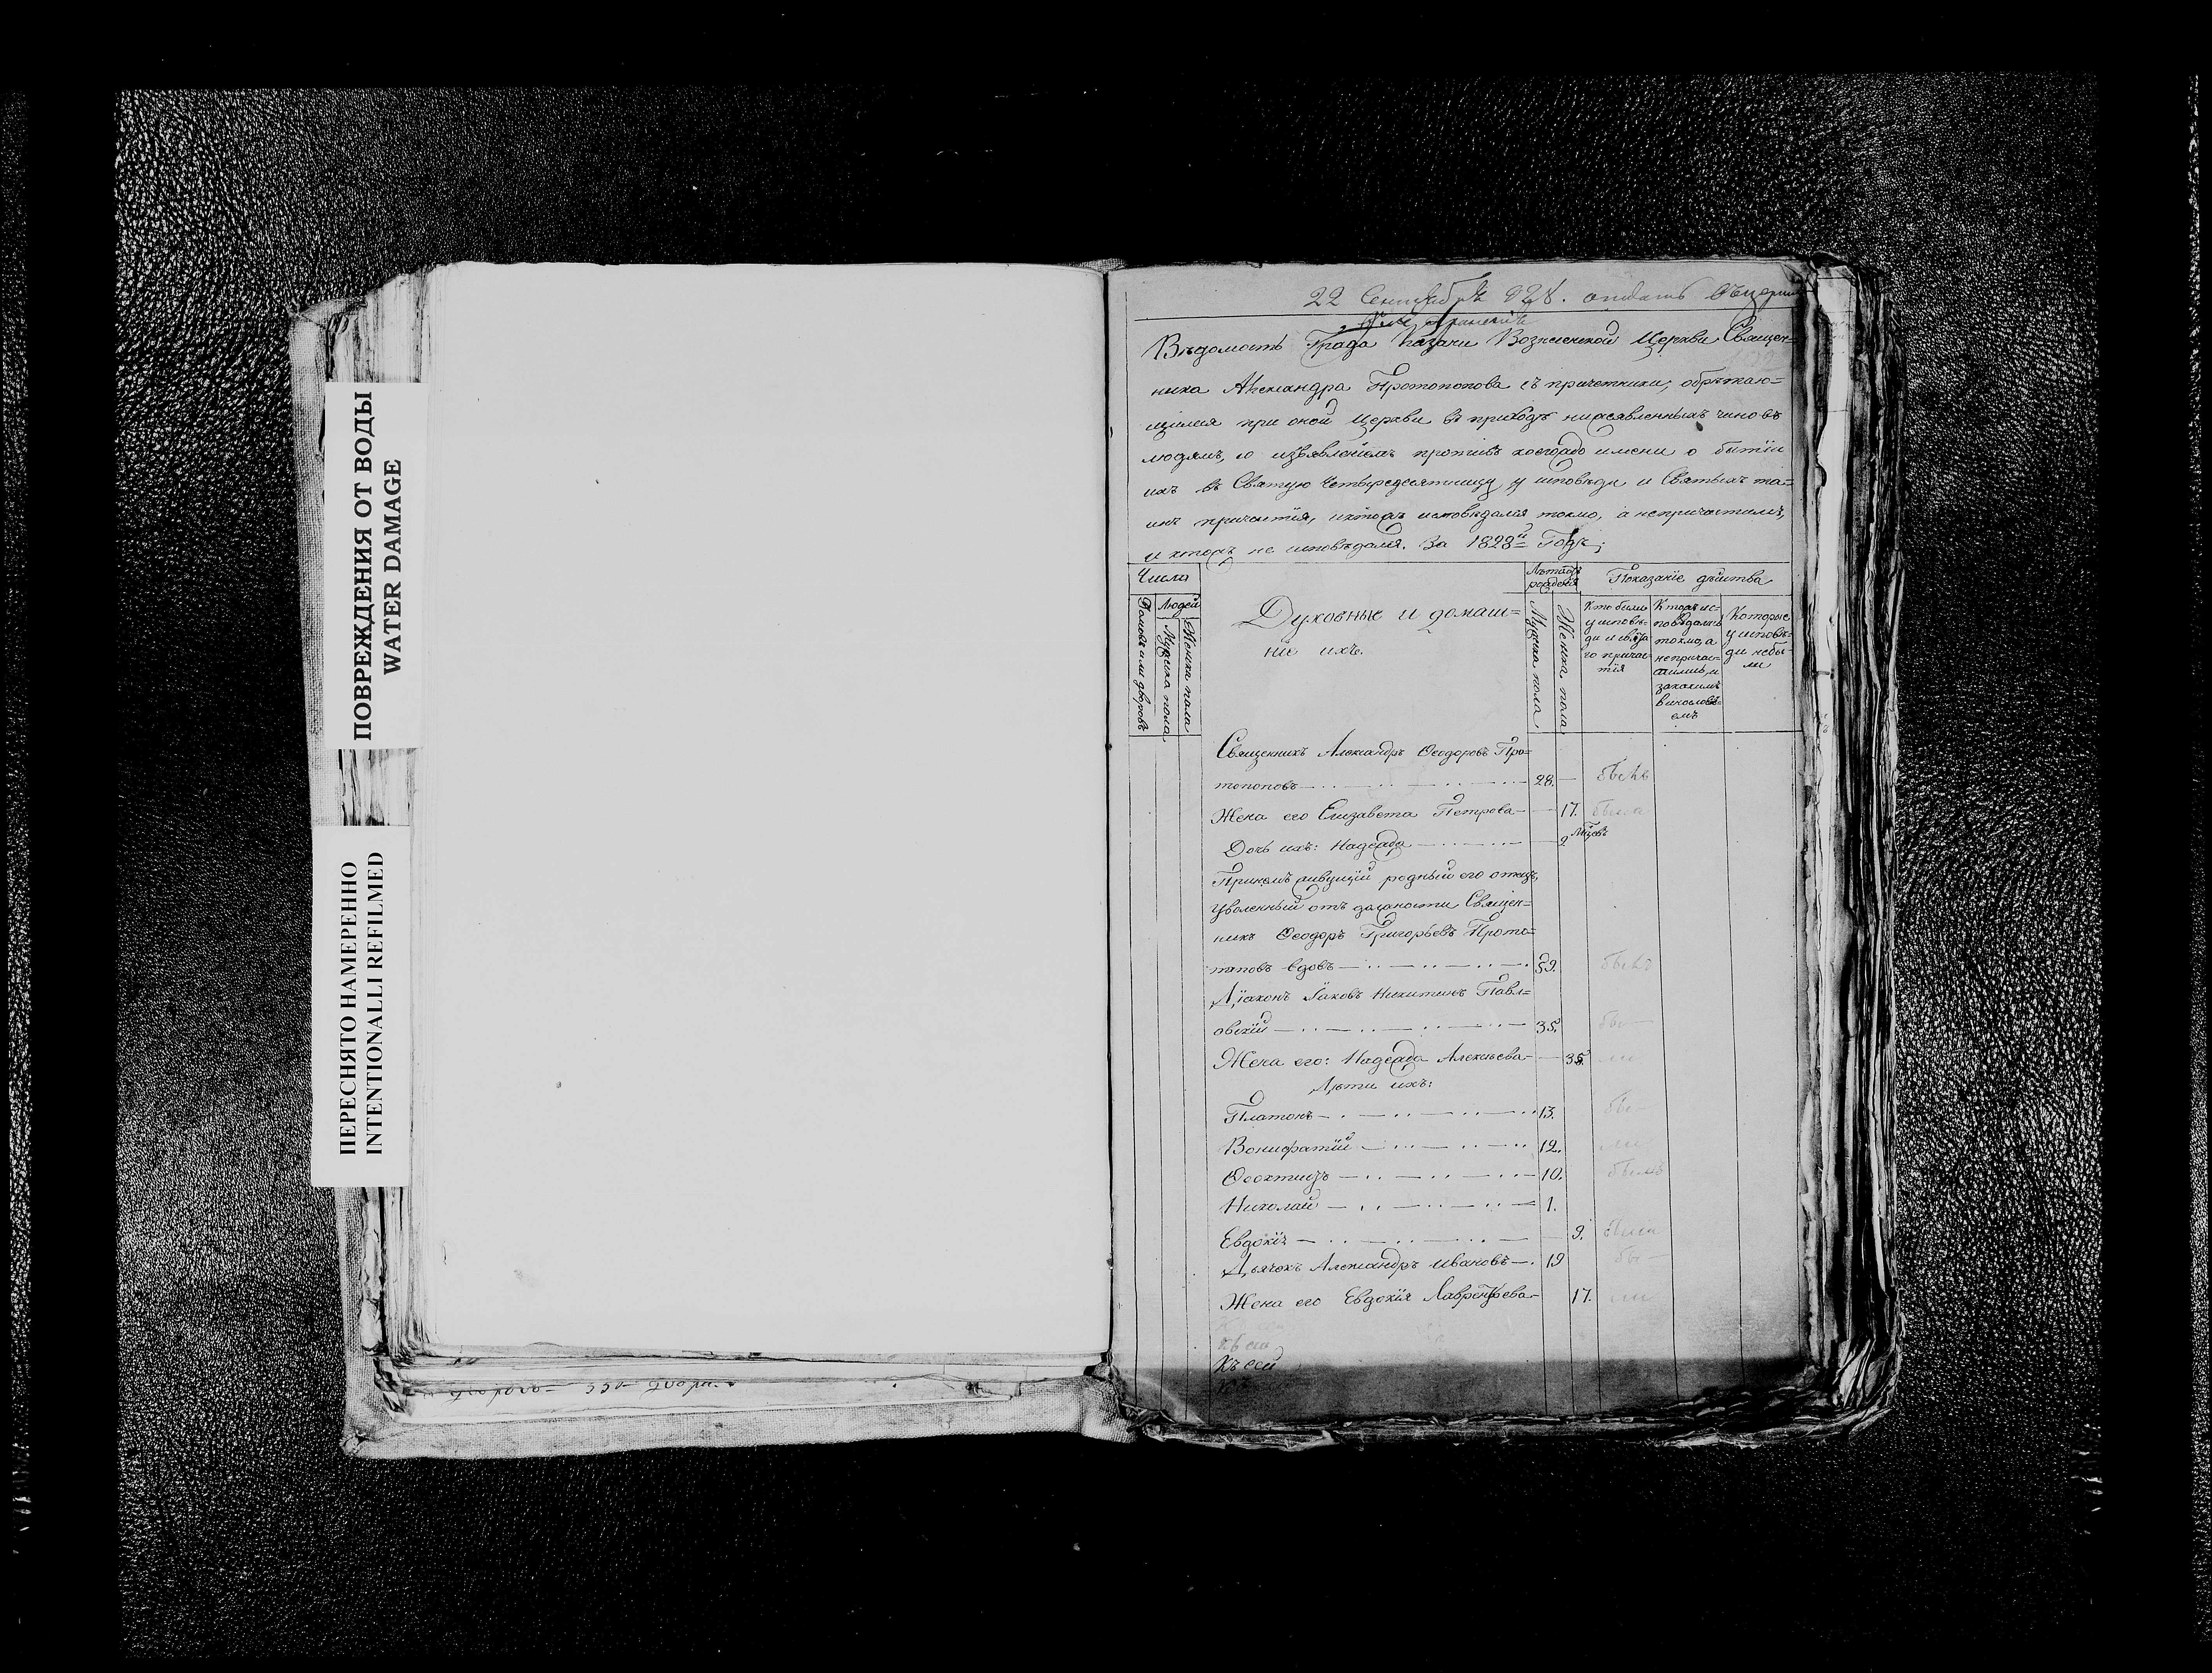 ПОВРЕЖДЕНИЯ ОТ ВОДЫ
WATER DAMAGE
ПЕРЕСНЯТО НАМЕРЕННО
INTENTIONALLI REFILMED
22 Сентября 828. отдать
Вѣдомость Града Казани Вознесенской Церкви Священ=
ника Александра Протопопова съ причетники, обрѣтаю=
щимся при оной Церкви въ приходѣ нижеявленныхъ чиновъ
людямъ, со изъявленіемъ противъ коегождо имени о бытіи
ихъ въ Святую Четыредесятницу у исповѣди и Святыхъ та=
инъ причастія, и кторъ исповѣдался токмо, а не причастился,
и кторъ не исповѣдался. За 1828й Годъ;
Числа
Людей
Домовъ или дворовъ
Мужска пола
Женска пола
Духовные и домаш=
ніе ихъ.
Лѣта отъ рожденія
Мужска пола
Женска пола
Показаніе дѣйства
Кто были
у исповѣ=
ди и свята
го причас=
тія
Которые ис=
повѣдались
токмо, а
не причас=
тились, и
за какимъ
винослові=
емъ
Которые
у исповѣ=
ди не бы=
ли
Священникъ Александръ Ѳеодоровъ Про=
топоповъ 28. былъ
Жена его Елизавета Петрова 17. была
Дочь ихъ: Надежда 2 мѣсяц.
При немъ живущій родный его отецъ,
уволенный отъ должности Священ=
никъ Ѳеодоръ Григорьевъ Прото=
поповъ вдовъ 59. былъ
Діаконъ Іаковъ Никитинъ Павл=
овскій 35. бы
Жена его: Надежда Алексѣева 35. ли
Дѣти ихъ:
Платонъ 13. бы
Вонифатій 12. ли
Ѳеоктистъ 10. былъ
Николай 1.
Евдокія 9. была
Дьячекъ Александръ Ивановъ 19 бы
Жена его Евдокія Лаврентьева 17. ли
Къ сей